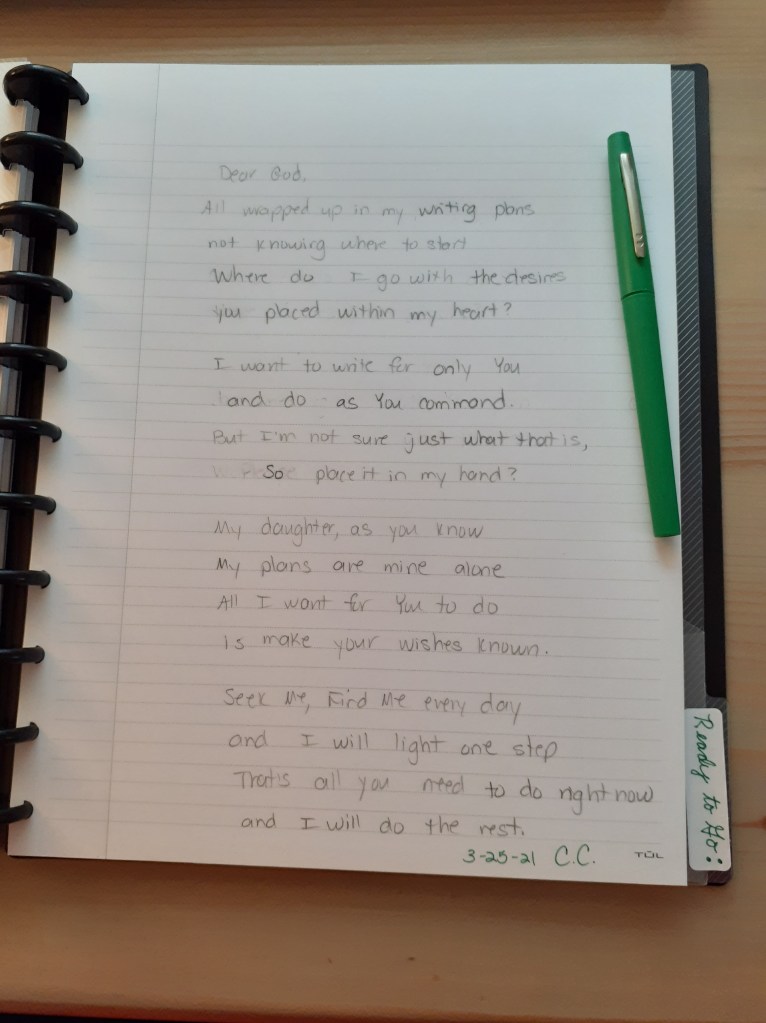 Dear God,
All wrapped up in my writing plans
not knowing where to start
Where do I go with the desires
you placed within my heart?
I want to write for only You
and do as You command.
But I'm not sure just what that is,
So place it in my hand?
My daughter, as you know
My plans are mine alone
All I want for You to do
Is make your wishes known.
Seek Me, Find Me every day
and I will light one step
That's all you need to do right now
and I will do the rest.
3-25-21 C.C.
TUL
Ready to Go: